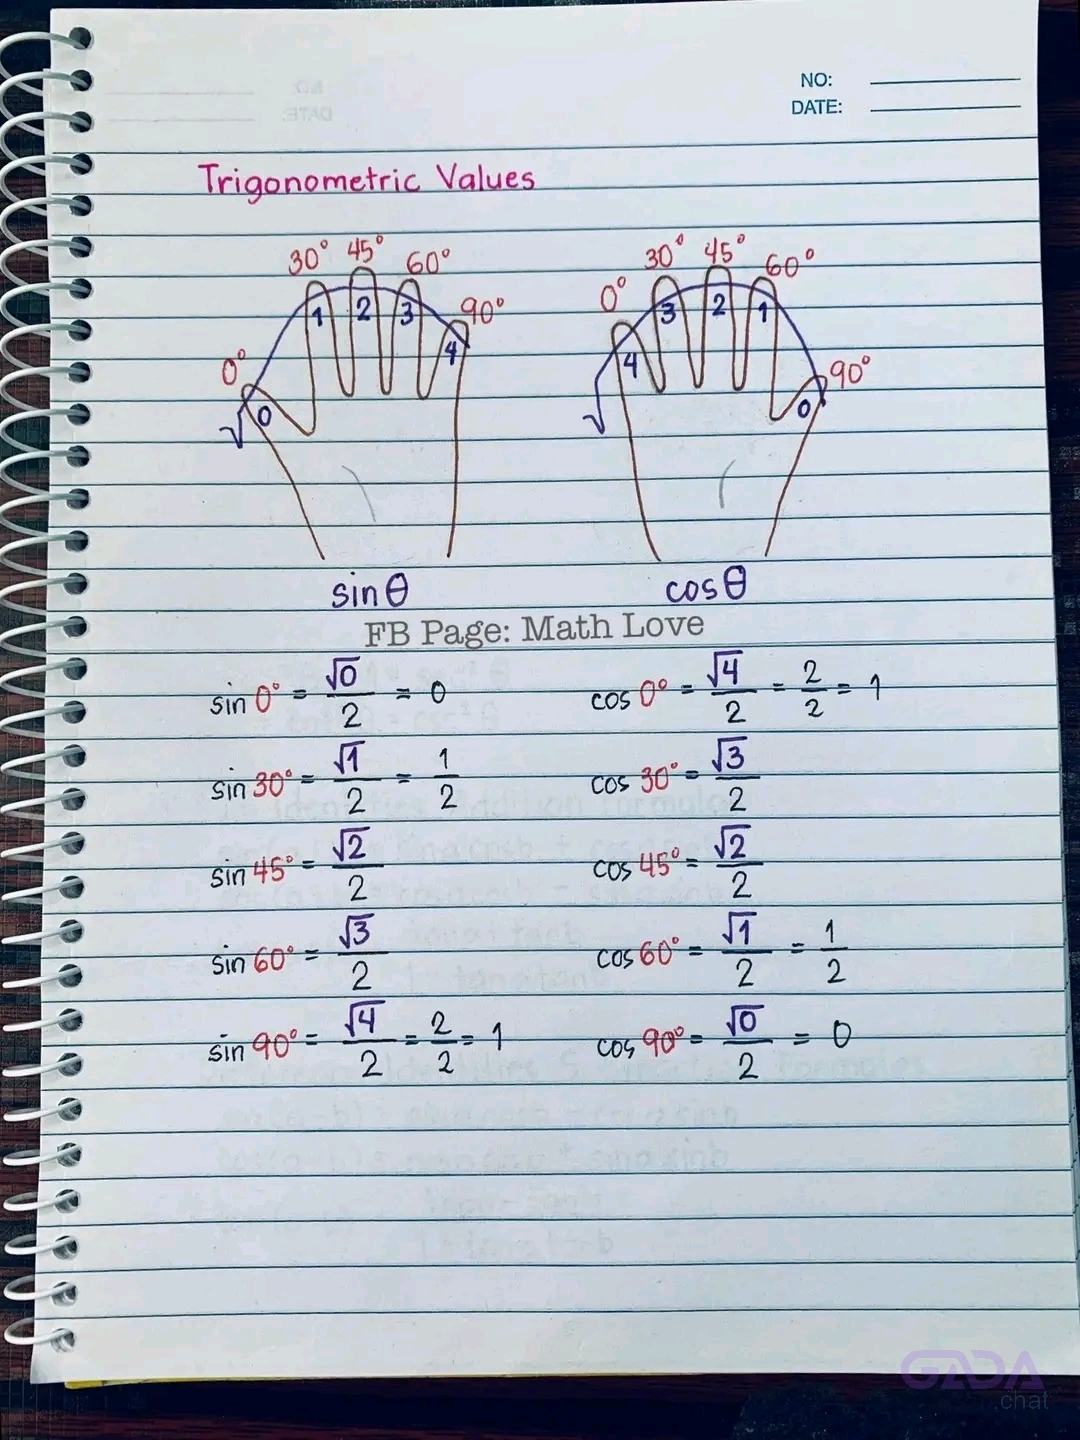 NO:
DATE:
Trigonometric Values
30° 45° 60° 90° 0°
1 2 3 4 0 √
0° 30° 45° 60° 90°
4 3 2 1 0 √
sin θ cos θ
FB Page: Math Love
sin 0° = √0/2 = 0 cos 0° = √4/2 = 2/2 = 1
sin 30° = √1/2 = 1/2 cos 30° = √3/2
sin 45° = √2/2 cos 45° = √2/2
sin 60° = √3/2 cos 60° = √1/2 = 1/2
sin 90° = √4/2 = 2/2 = 1 cos 90° = √0/2 = 0
GADA
.chat